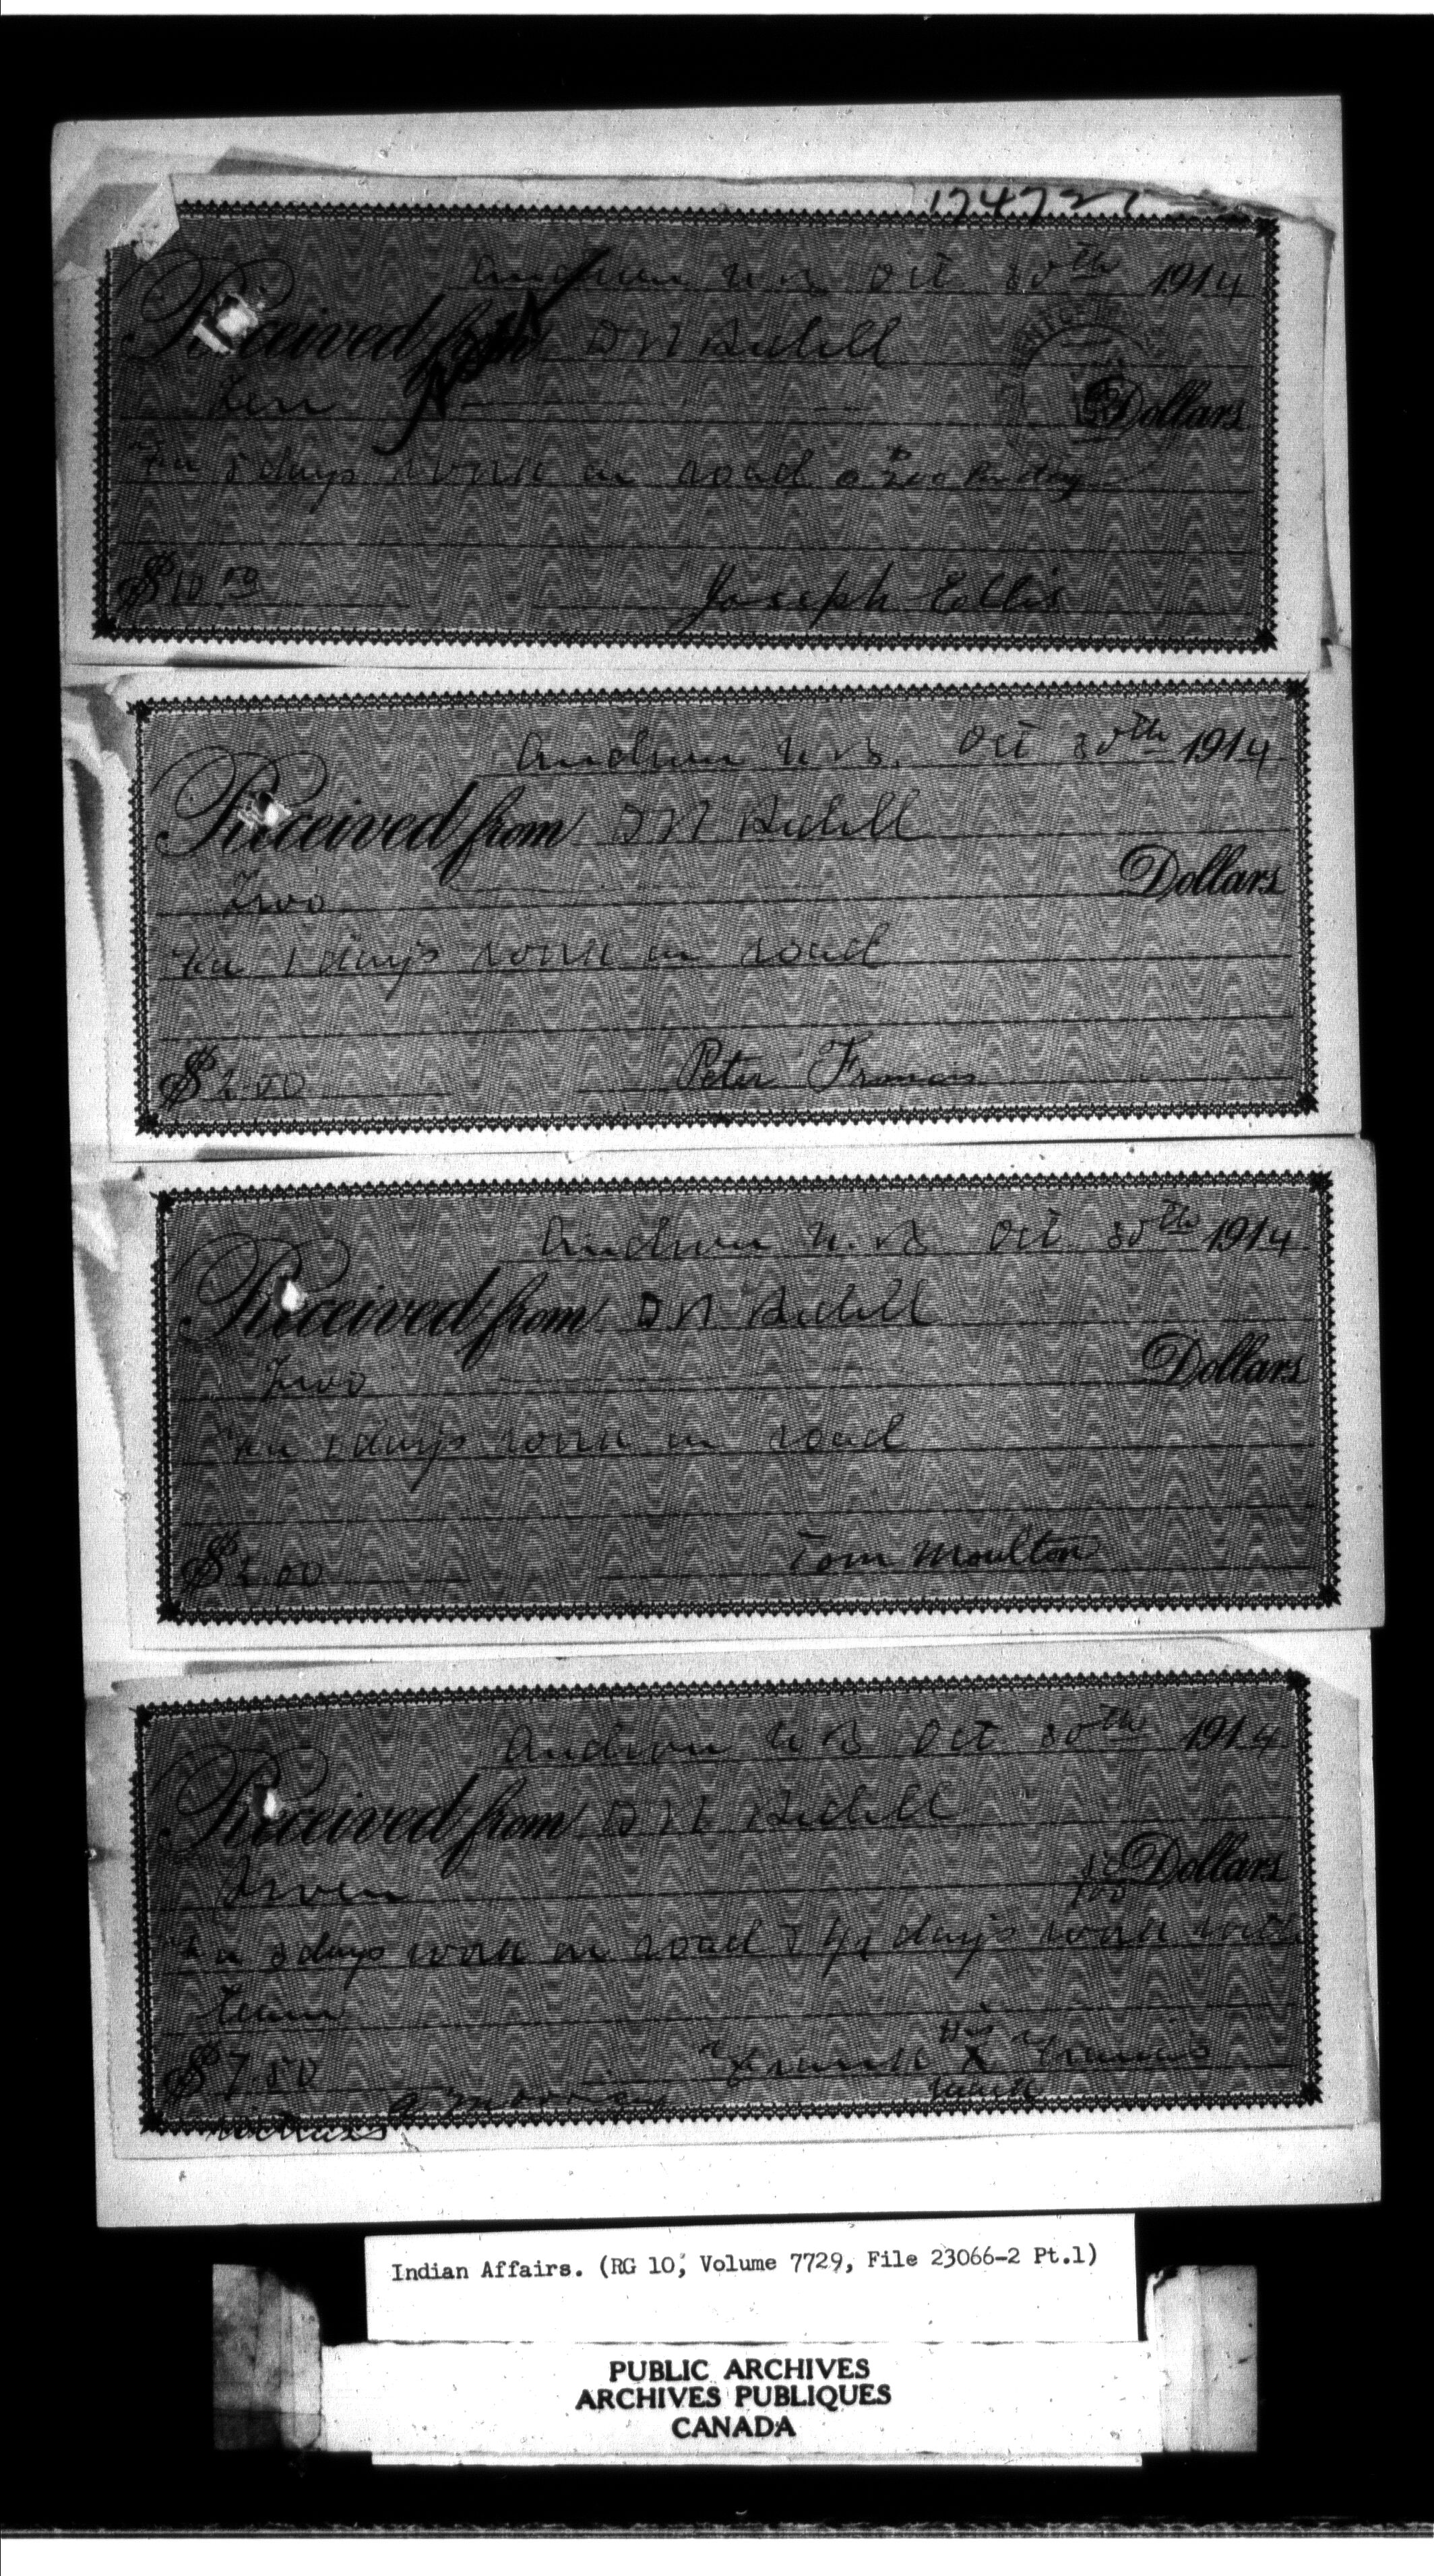 174727
Andover N B Oct 30th 1914
Received from D N Bedell
Ten Dollars
For 5 days work on road @ $2.00 Per day
$10.00 Joseph Ellis
Andover N B. Oct 30th 1914
Received from D N Bedell
Two Dollars
For 1 day's work on road
$2.00 Peter Francis
Andover N. B Oct 30th 1914
Received from D N Bedell
Two Dollars
For 1 day's work on road
$2.00 Tom Moulton
Andover N B Oct 30th 1914
Received from D N Bedell
50/100 Dollars
For 3 days work on road & 1/2 day's work with
team
his
$7.50 Frank X Francis
mark
witness
Indian Affairs. (RG 10, Volume 7729, File 23066-2 Pt.1)
PUBLIC ARCHIVES
ARCHIVES PUBLIQUES
CANADA